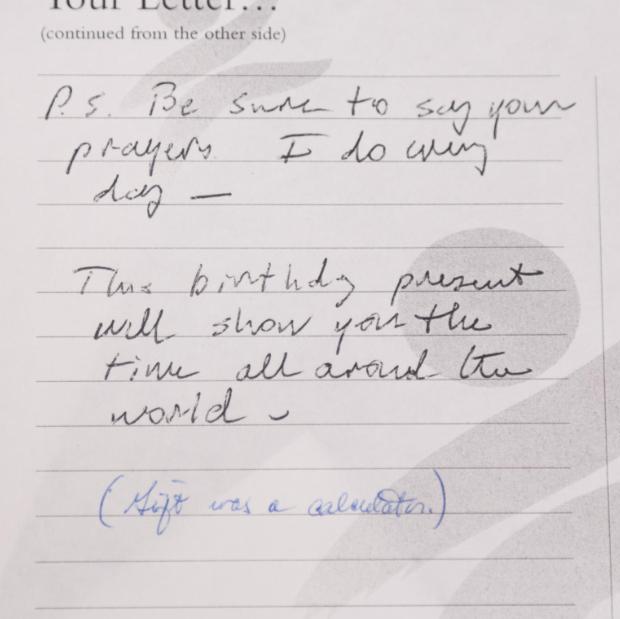 Your Letter...
(continued from the other side)
P.S. Be sure to say your
prayers. I do every
day —
This birthday present
will show you the
time all around the
world -
(Gift was a calculator.)